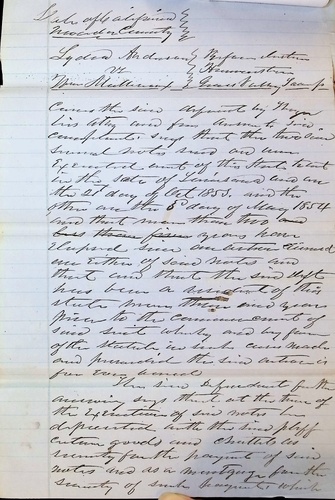 State of California }
Nevada County }
Lydia Anderson } Before Justice
vs
Wm } Grass Valley Township
Comes the said defendant by
his atty and for answer to
complaint says that the two
notes sued on were
Executed out of the State to wit
in the State of Louisiana and on
the 20 day of Oct 1853. and the
other on the 3d day of May 1854
and that more than two and
less than five years have
Elapsed since an action accrued
on Either of said notes and
that and that the said deft
has been a resident of this
state more than one year
prior to the commencement of
said suit whereby and by force
of the statute in such cases made
and provided the said action is
for ever barred
The said Defendant further
answering says that at the time of
the Execution of said notes he
deposited with the said plff
certain goods and chattels as
security for the payment of said
notes and as a mortgage for the
security of such payment which